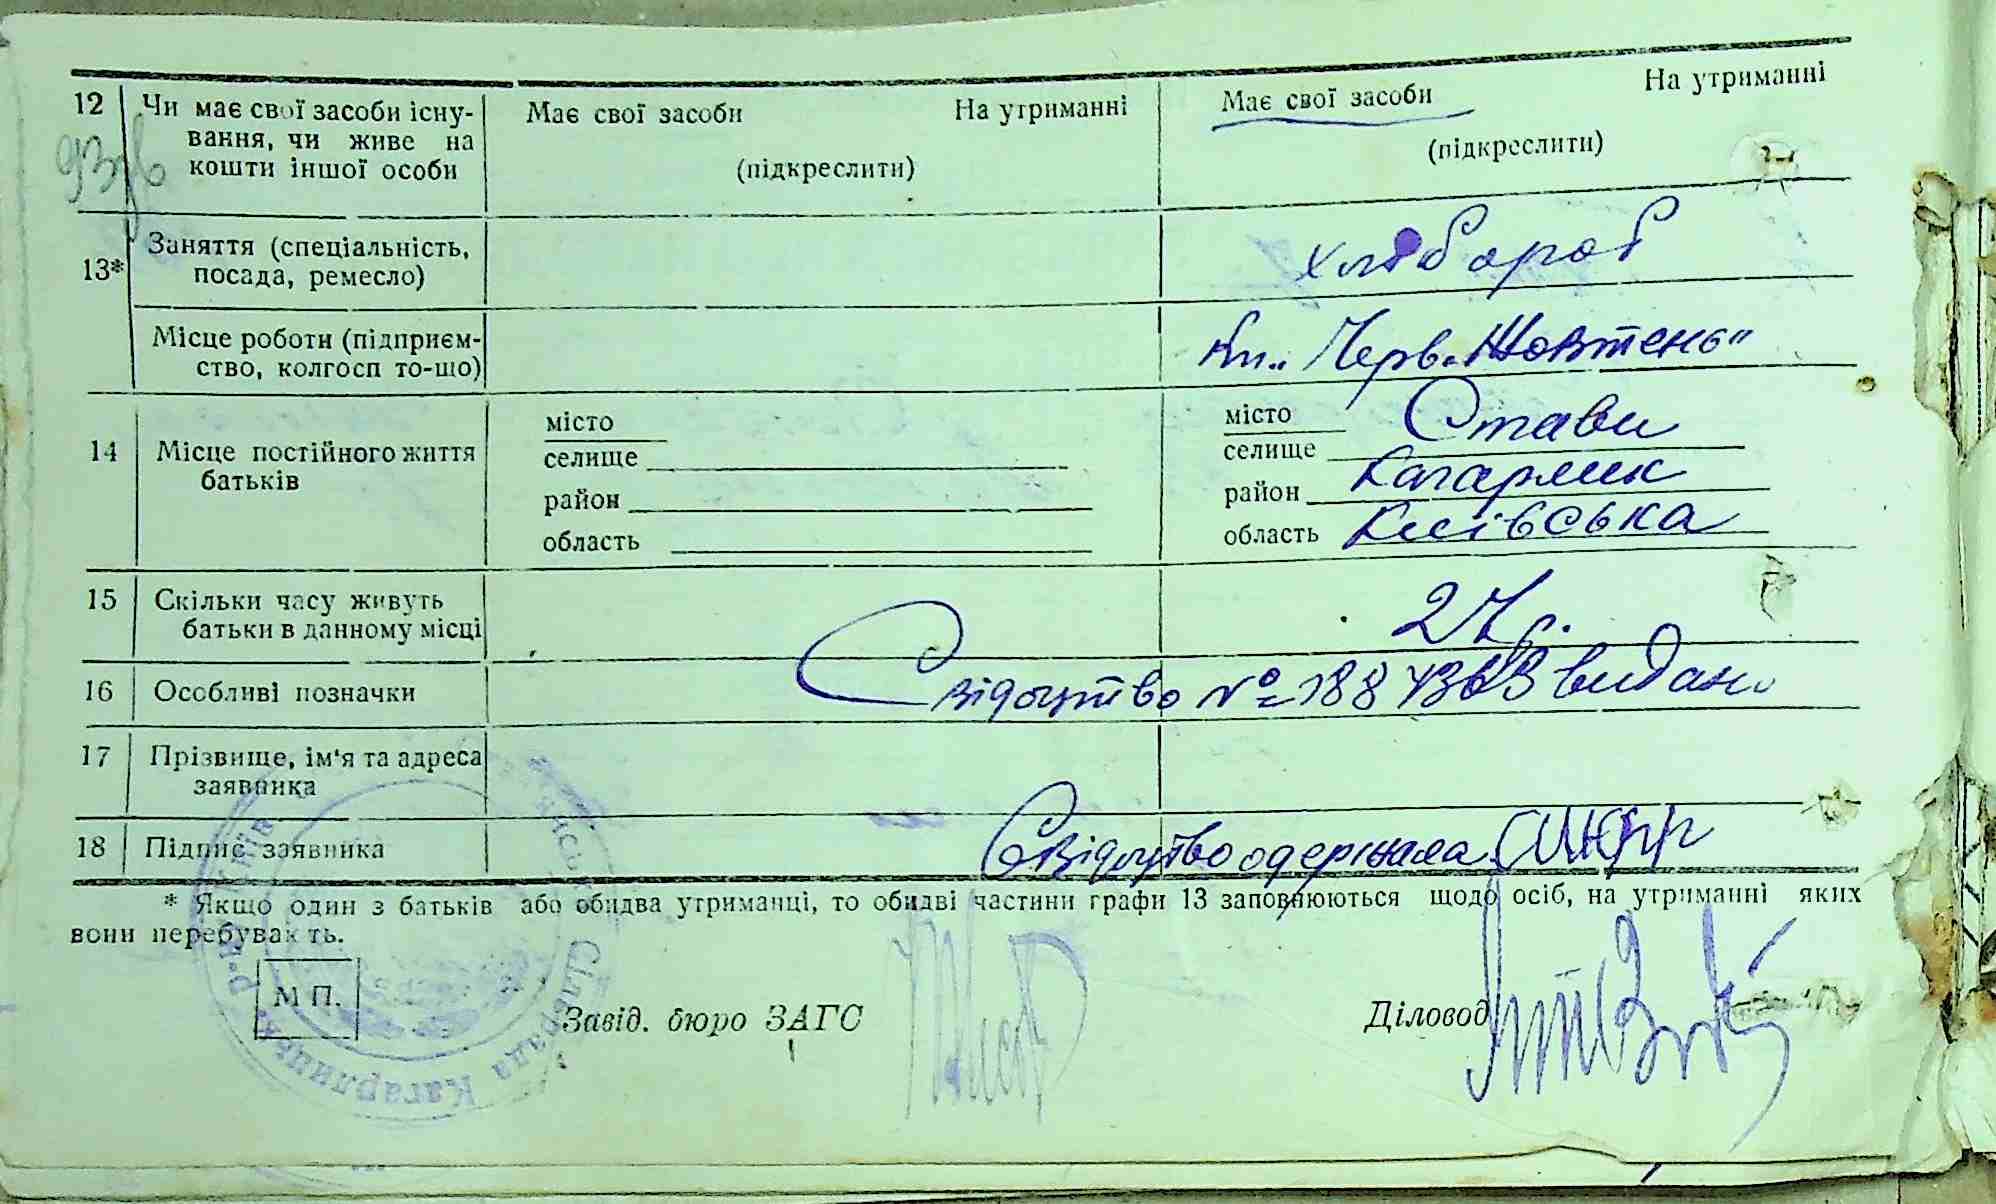 12 Чи має свої засоби існу- Має свої засоби На утриманні Має свої засоби На утриманні
вання, чи живе на
кошти іншої особи (підкреслити) (підкреслити)
13* Заняття (спеціальність, хлібороб
посада, ремесло)
Місце роботи (підприєм- Кп. „Черв. Жовтень"
ство, колгосп то-що)
14 Місце постійного життя місто місто Стави
батьків селище селище
район район Кагарлик
область область Київська
15 Скільки часу живуть
батьки в данному місці
16 Особливі позначки Свідоцтво № видано
17 Прізвище, ім'я та адреса
заявника
18 Підпис заявника Свідоцтво одержала
* Якщо один з батьків або обидва утриманці, то обидві частини графи 13 заповнюються щодо осіб, на утриманні яких
вони перебувають.
М П.
Завід. бюро ЗАГС Діловод
Сільрада Кагарлицьк. р-ну Київ